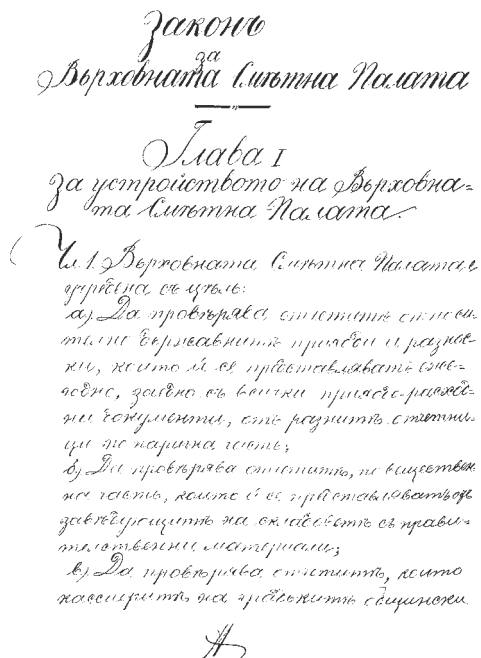 Законъ
за
Върховната Смѣтна Палата
Глава I
за устройството на Върховна=
та Смѣтна Палата.
Чл. 1. Върховната Смѣтна Палата е
учрѣдена съ цѣль:
а) Да провѣрява отчетитѣ относи-
телно държавнитѣ приходи и разнос-
ки, които й се прѣдставляватъ еже-
годно, заедно съ всички приходо-расход-
ни документи, отъ разнитѣ отчетни-
ци по парична часть;
б) Да провѣрява отчетитѣ, по веществен
на часть, които й се прѣдставляватъ отъ
завѣдующитѣ на складоветѣ съ прави-
телственни материали;
в) Да провѣрява отчетитѣ, които
кассиеритѣ на градскитѣ общински